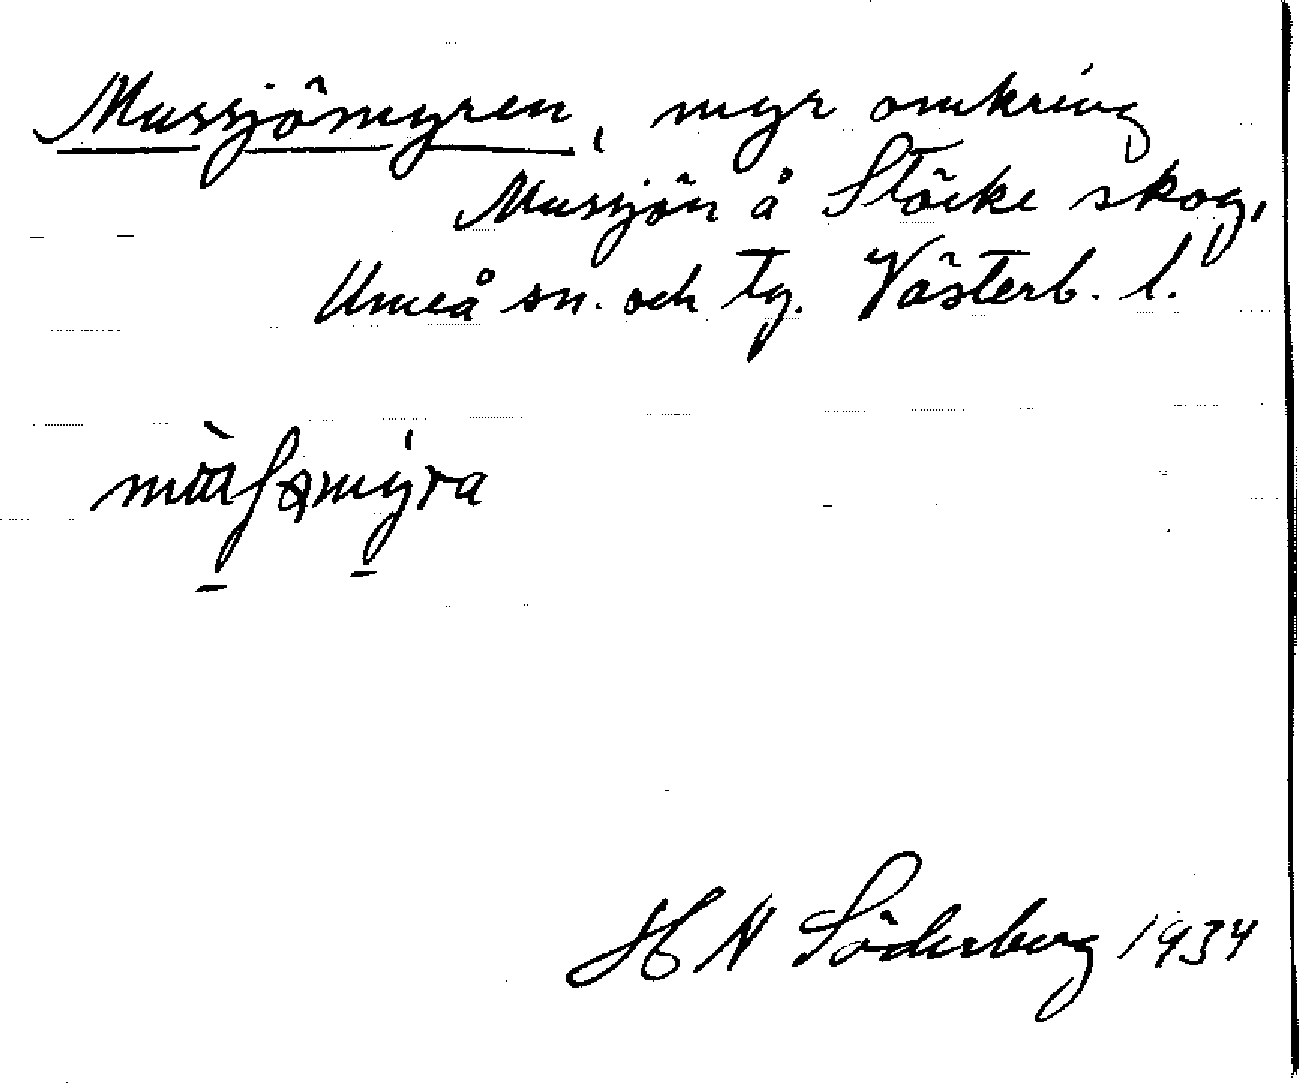 Mussjömyren, myr omkring
Mussjön å Stöcke skog,
Umeå sn. och tg. Västerb. l.
H N Söderberg 1934